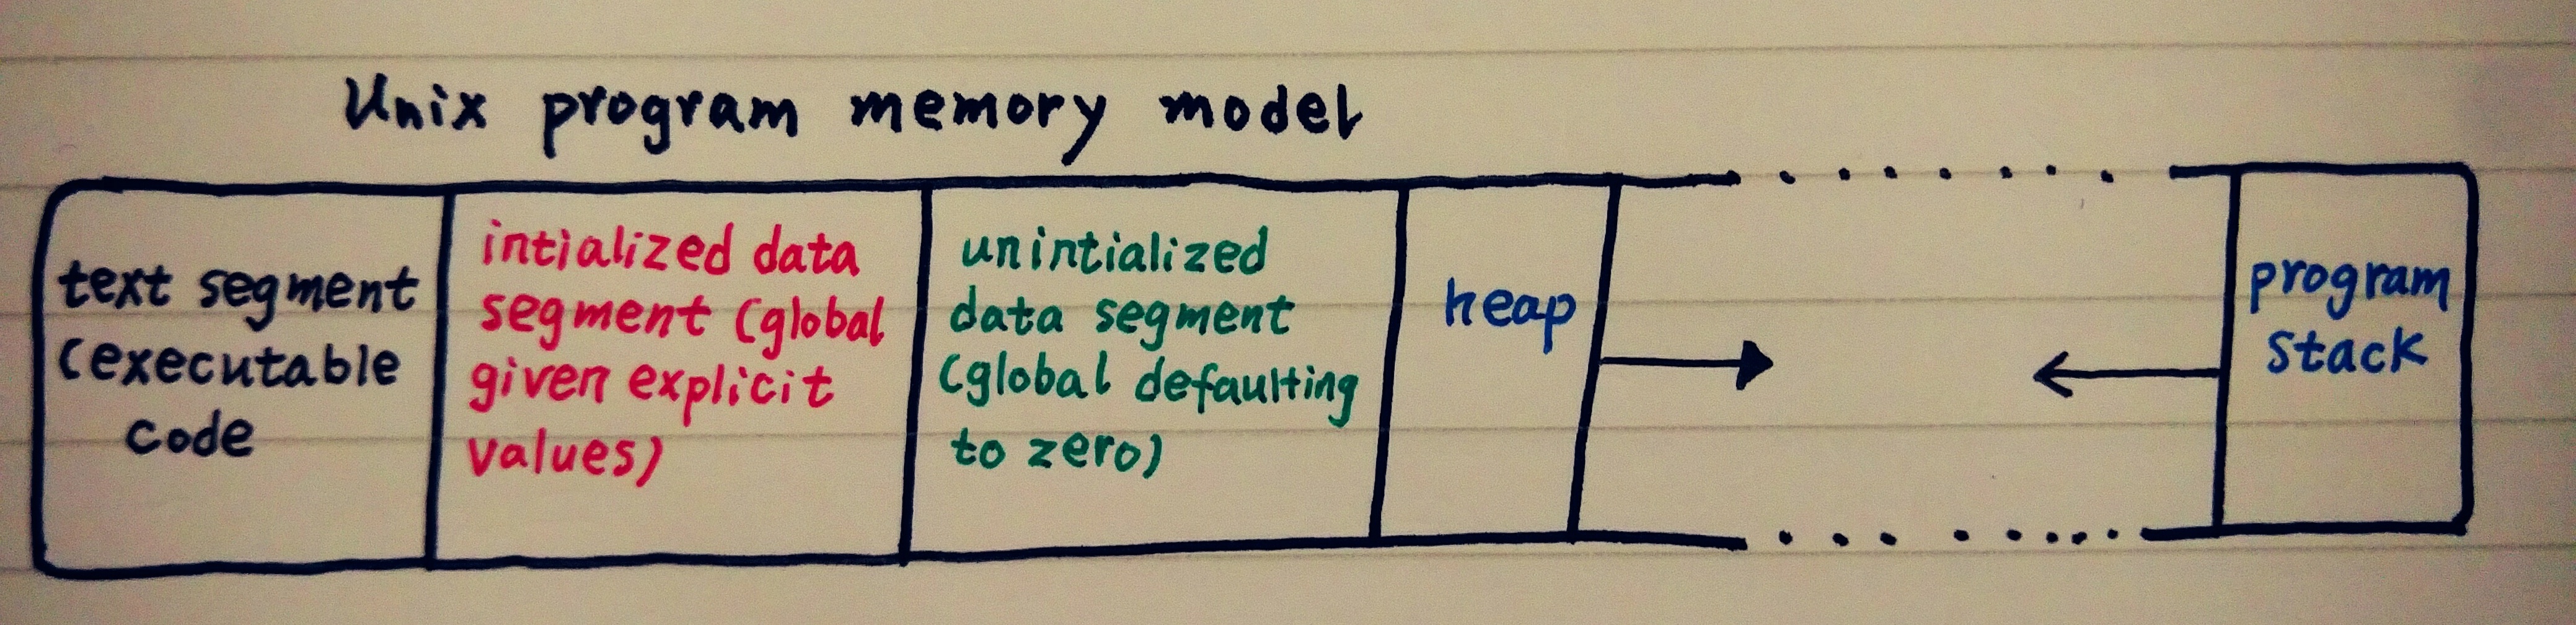 Unix program memory model
text segment
(executable
code
intialized data
segment (global
given explicit
values)
unintialized
data segment
(global defaulting
to zero)
heap
program
stack